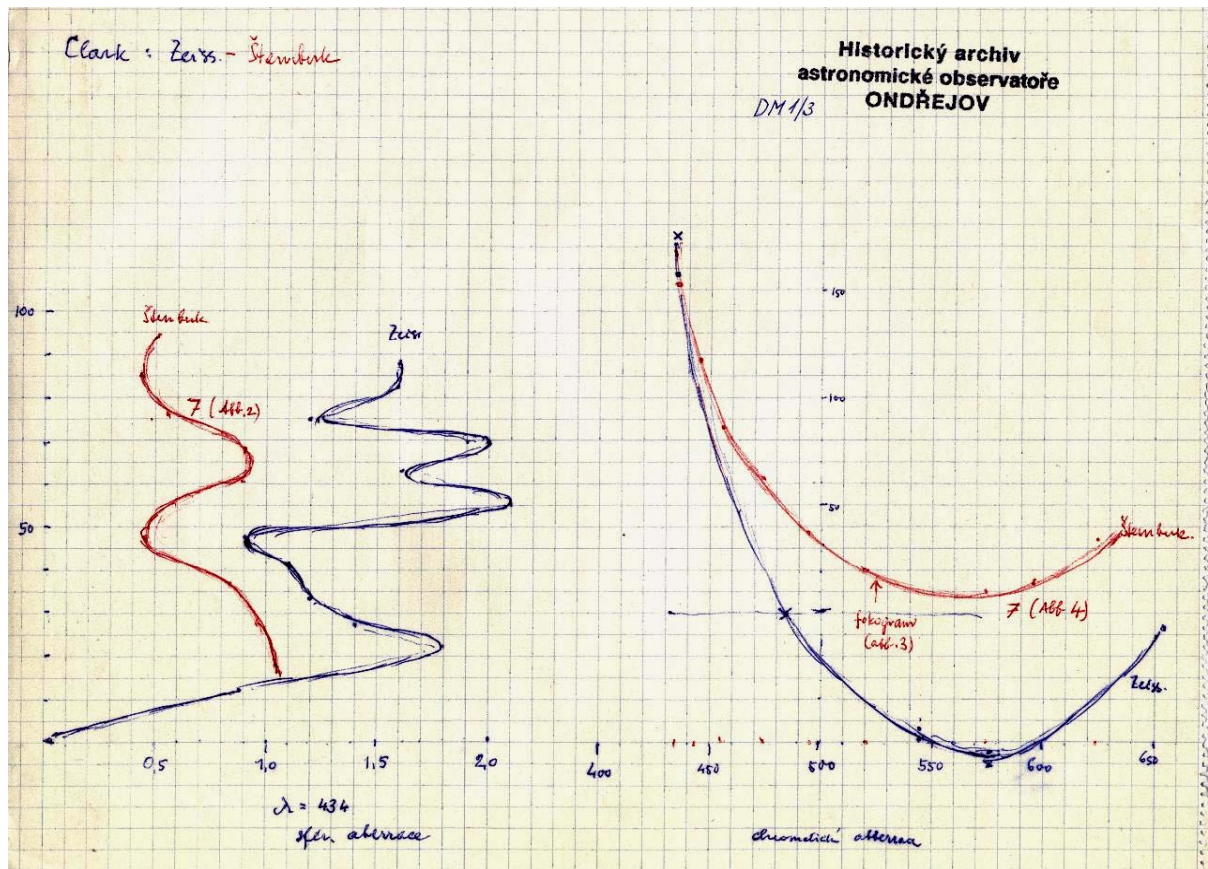 Clark : Zeiss. - Šternberk
Historický archiv
astronomické observatoře
ONDŘEJOV
DM 1/3
100
Šternberk
Zeiss
7 (Abb. 2)
50
0,5
1,0
1,5
2,0
λ = 434
sfér. aberrace
150
100
50
Šternberk.
7 (Abb. 4)
fokogram
(abb. 3)
Zeiss.
400
450
500
550
600
650
chromatická abberrace